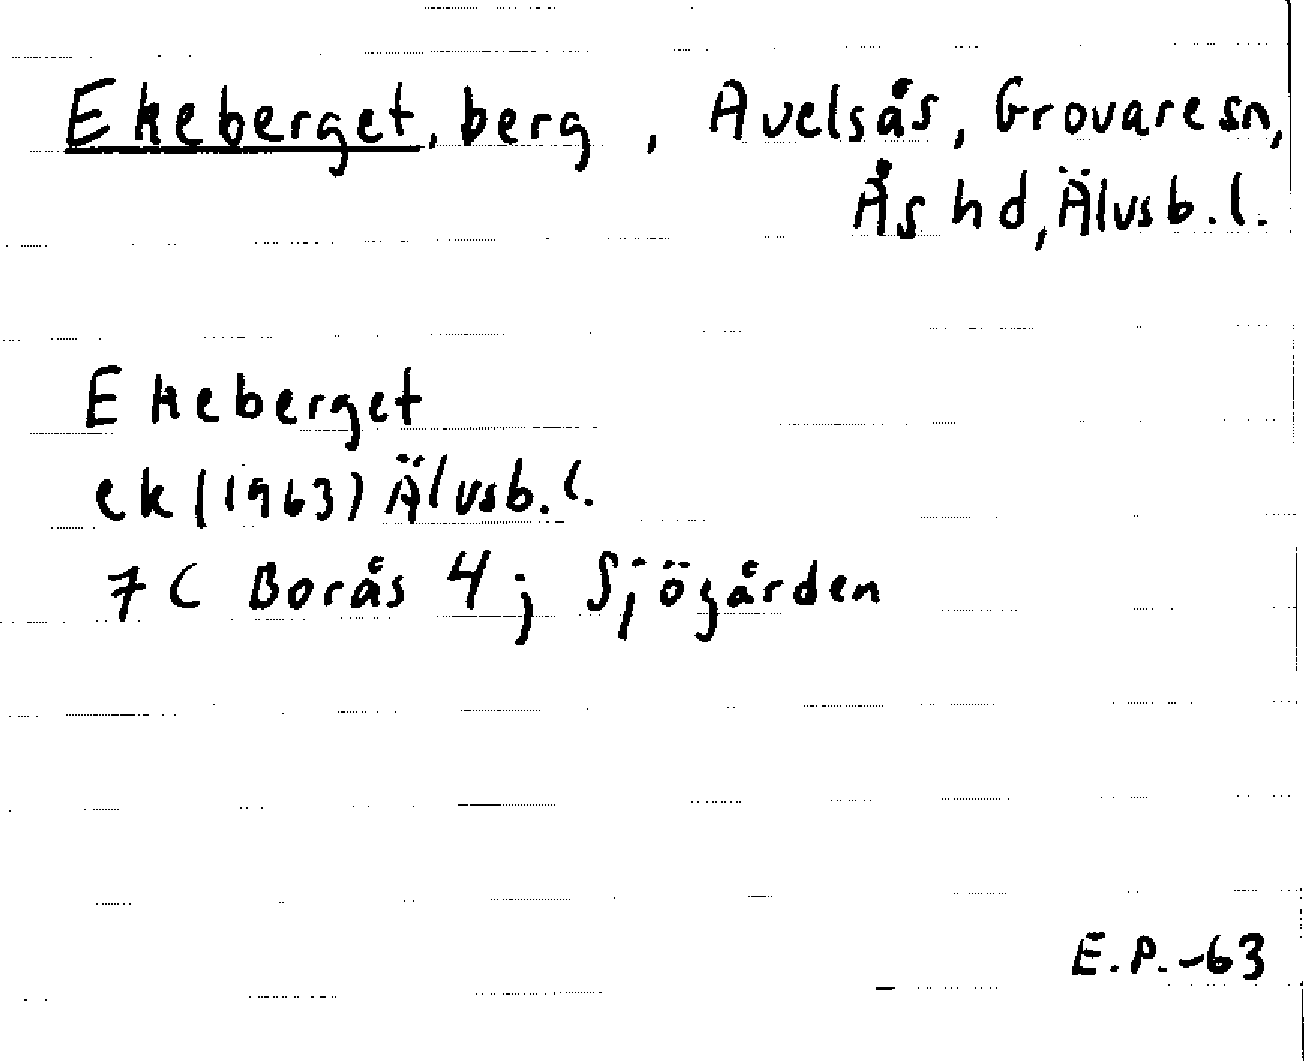 Ekeberget, berg, Avelsås, Grovare sn,
Ås hd, Älvsb. l.
Ekeberget
ek (1963) Älvsb. l.
7 C Borås 4; Sjögården
E.P.-63